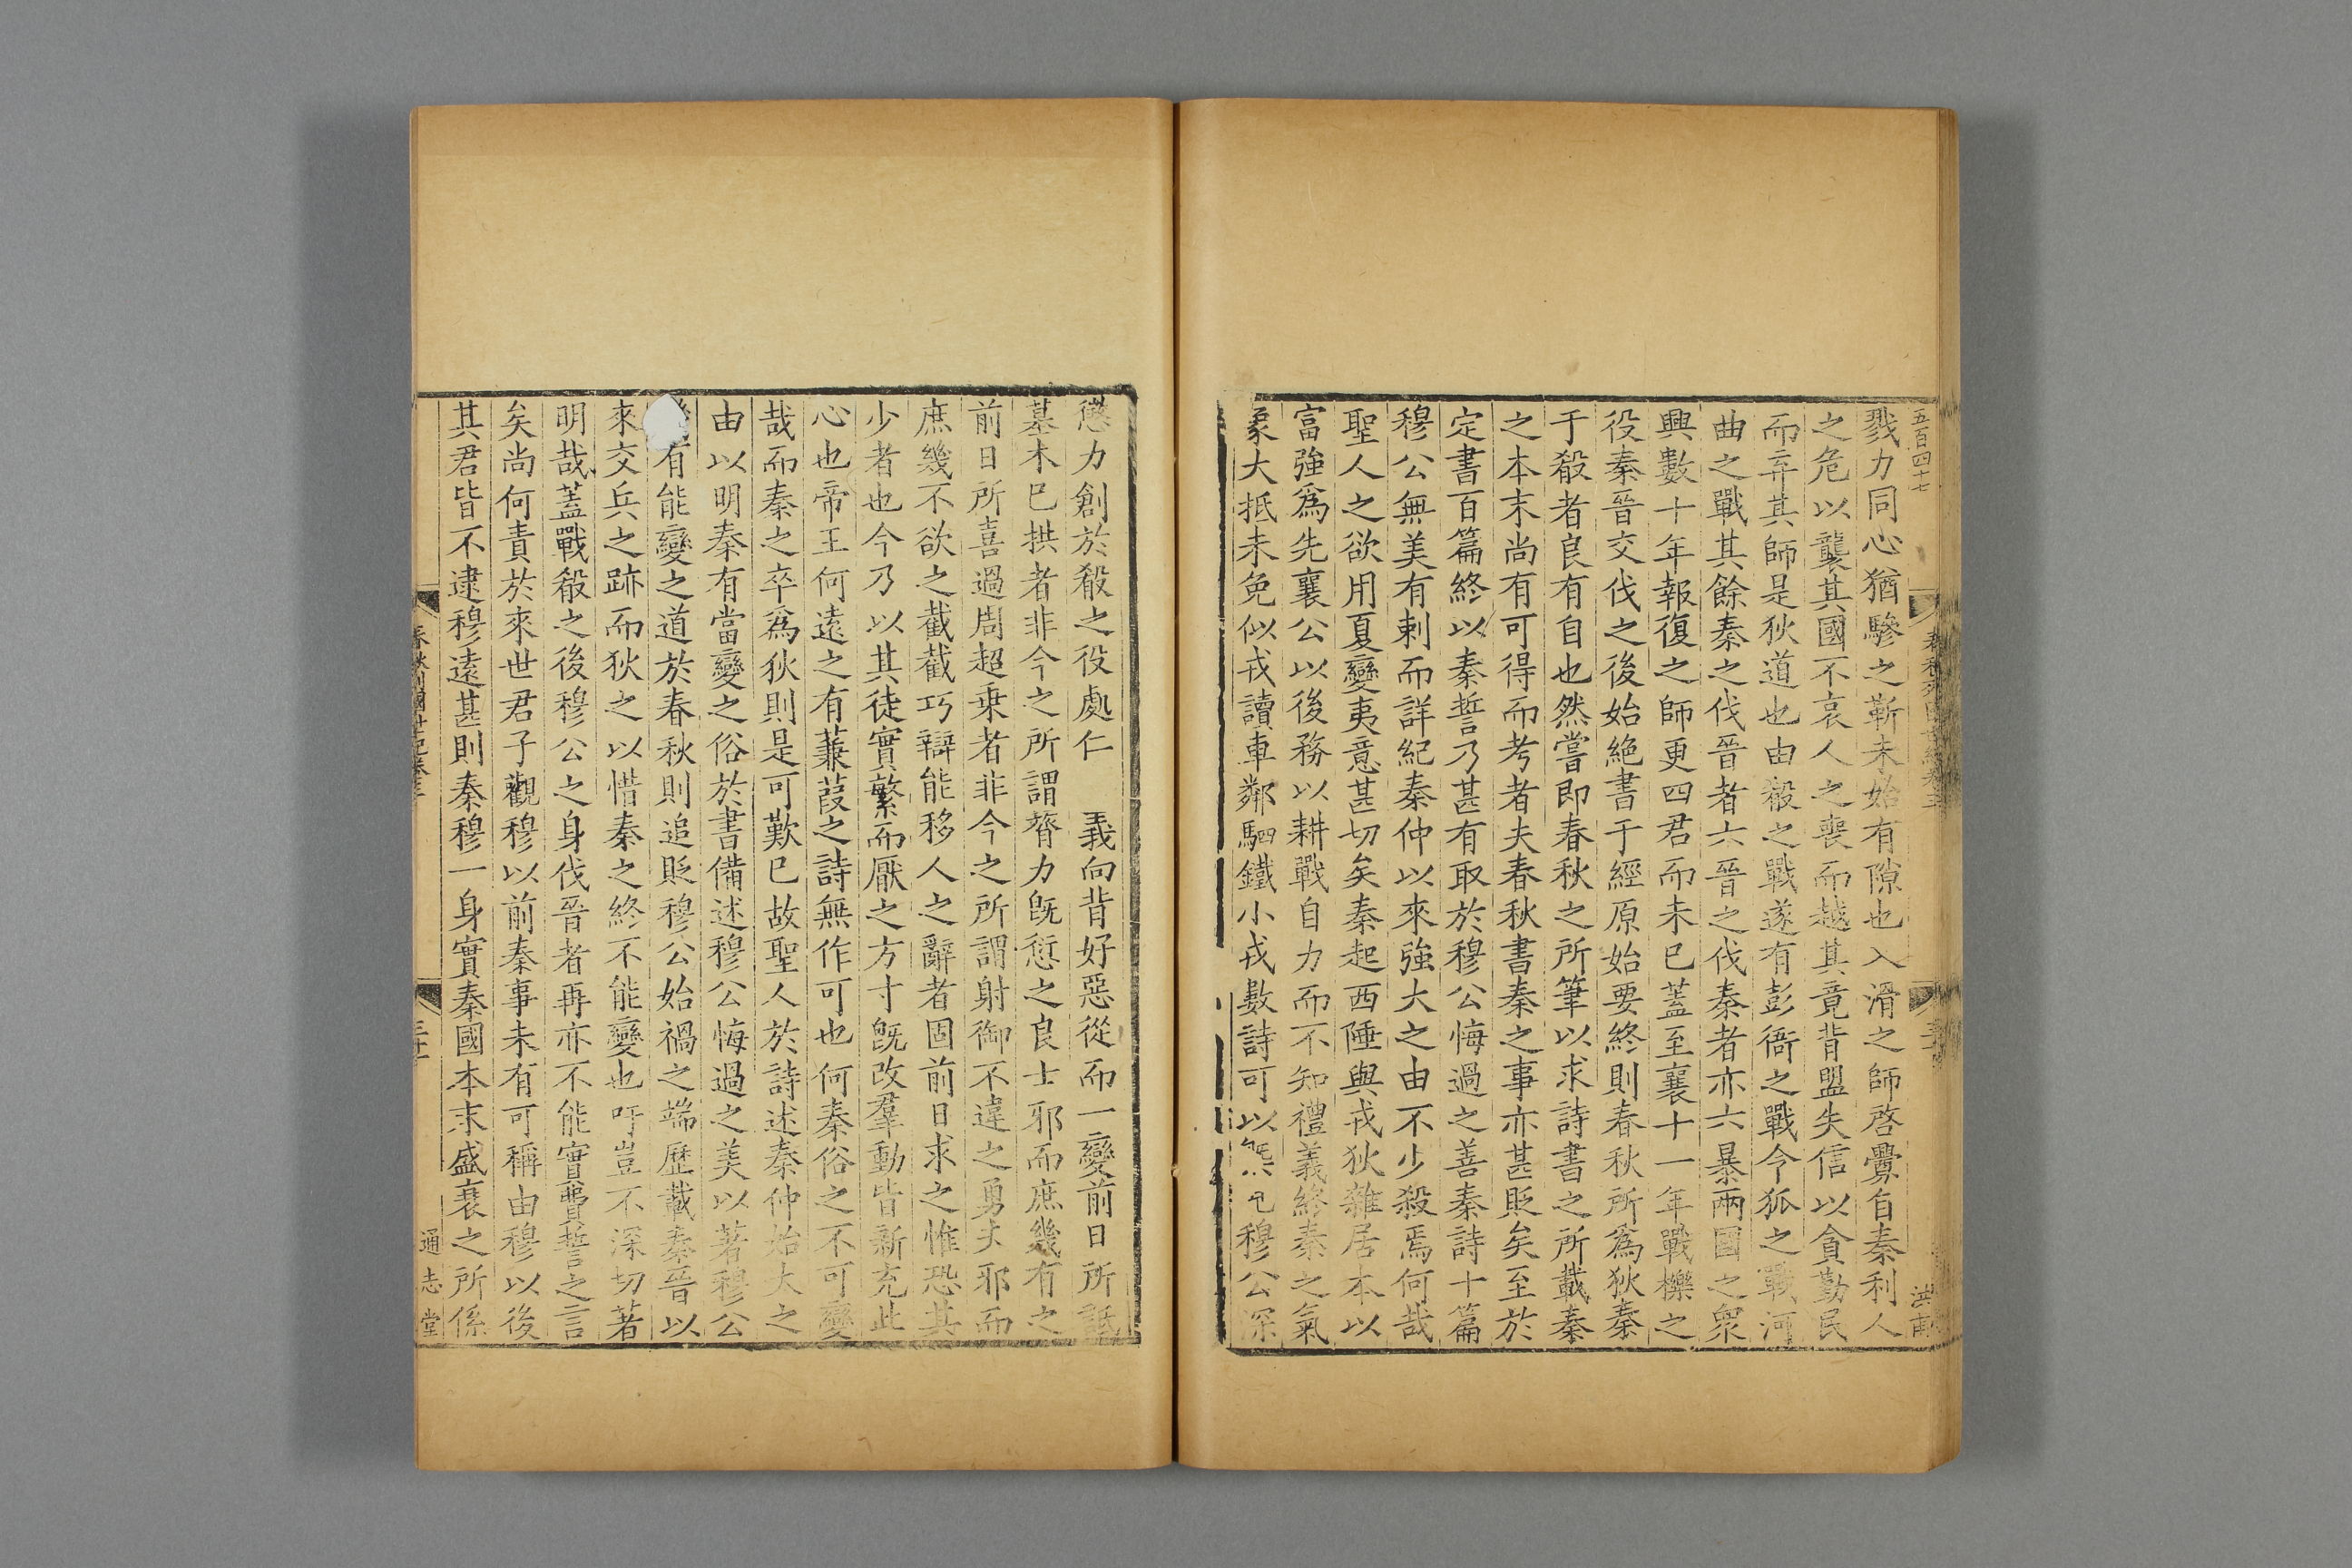 五百四十七
洪甫
戮力同心猶驂之靳未始有隙也入滑之師啓釁自秦利人
之危以襲其國不哀人之喪而越其竟背盟失信以貪勤民
而弃其師是狄道也由殽之戰遂有彭衙之戰令狐之戰河
曲之戰其餘秦之伐晉者六晉之伐秦者亦六暴兩國之衆
興數十年報復之師更四君而未已蓋至襄十一年戰櫟之
役秦晉交伐之後始絶書于經原始要終則春秋所爲狄秦
于殽者良有自也然嘗即春秋之所筆以求詩書之所載秦
之本末尚有可得而考者夫春秋書秦之事亦甚貶矣至於
定書百篇終以秦誓乃甚有取於穆公悔過之善秦詩十篇
穆公無美有刺而詳紀秦仲以來強大之由不少殺焉何哉
聖人之欲用夏變夷意甚切矣秦起西陲與戎狄雜居本以
富強爲先襄公以後務以耕戰自力而不知禮義終秦之氣
象大抵未免似戎讀車鄰駟鐵小戎數詩可以槩見穆公深
懲力創於殽之役處仁 義向背好惡從而一變前日所詆
墓木已拱者非今之所謂膂力旣愆之良士邪而庶幾有之
前日所喜過周超乗者非今之所謂射御不違之勇夫邪而
庶幾不欲之截截巧辯能移人之辭者固前日求之惟恐其
少者也今乃以其徒實繁而厭之方寸旣改羣動皆新充此
心也帝王何遠之有蒹葭之詩無作可也何秦俗之不可變
哉而秦之卒爲狄則是可歎已故聖人於詩述秦仲始大之
由以明秦有當變之俗於書備述穆公悔過之美以著穆公
有能變之道於春秋則追貶穆公始禍之端歷載秦晉以
來交兵之跡而狄之以惜秦之終不能變也吁豈不深切著
明哉蓋戰殽之後穆公之身伐晉者再亦不能實費誓之言
矣尚何責於來世君子觀穆以前秦事未有可稱由穆以後
其君皆不逮穆遠甚則秦穆一身實秦國本末盛衰之所係
春秋列國世紀卷三
通志堂